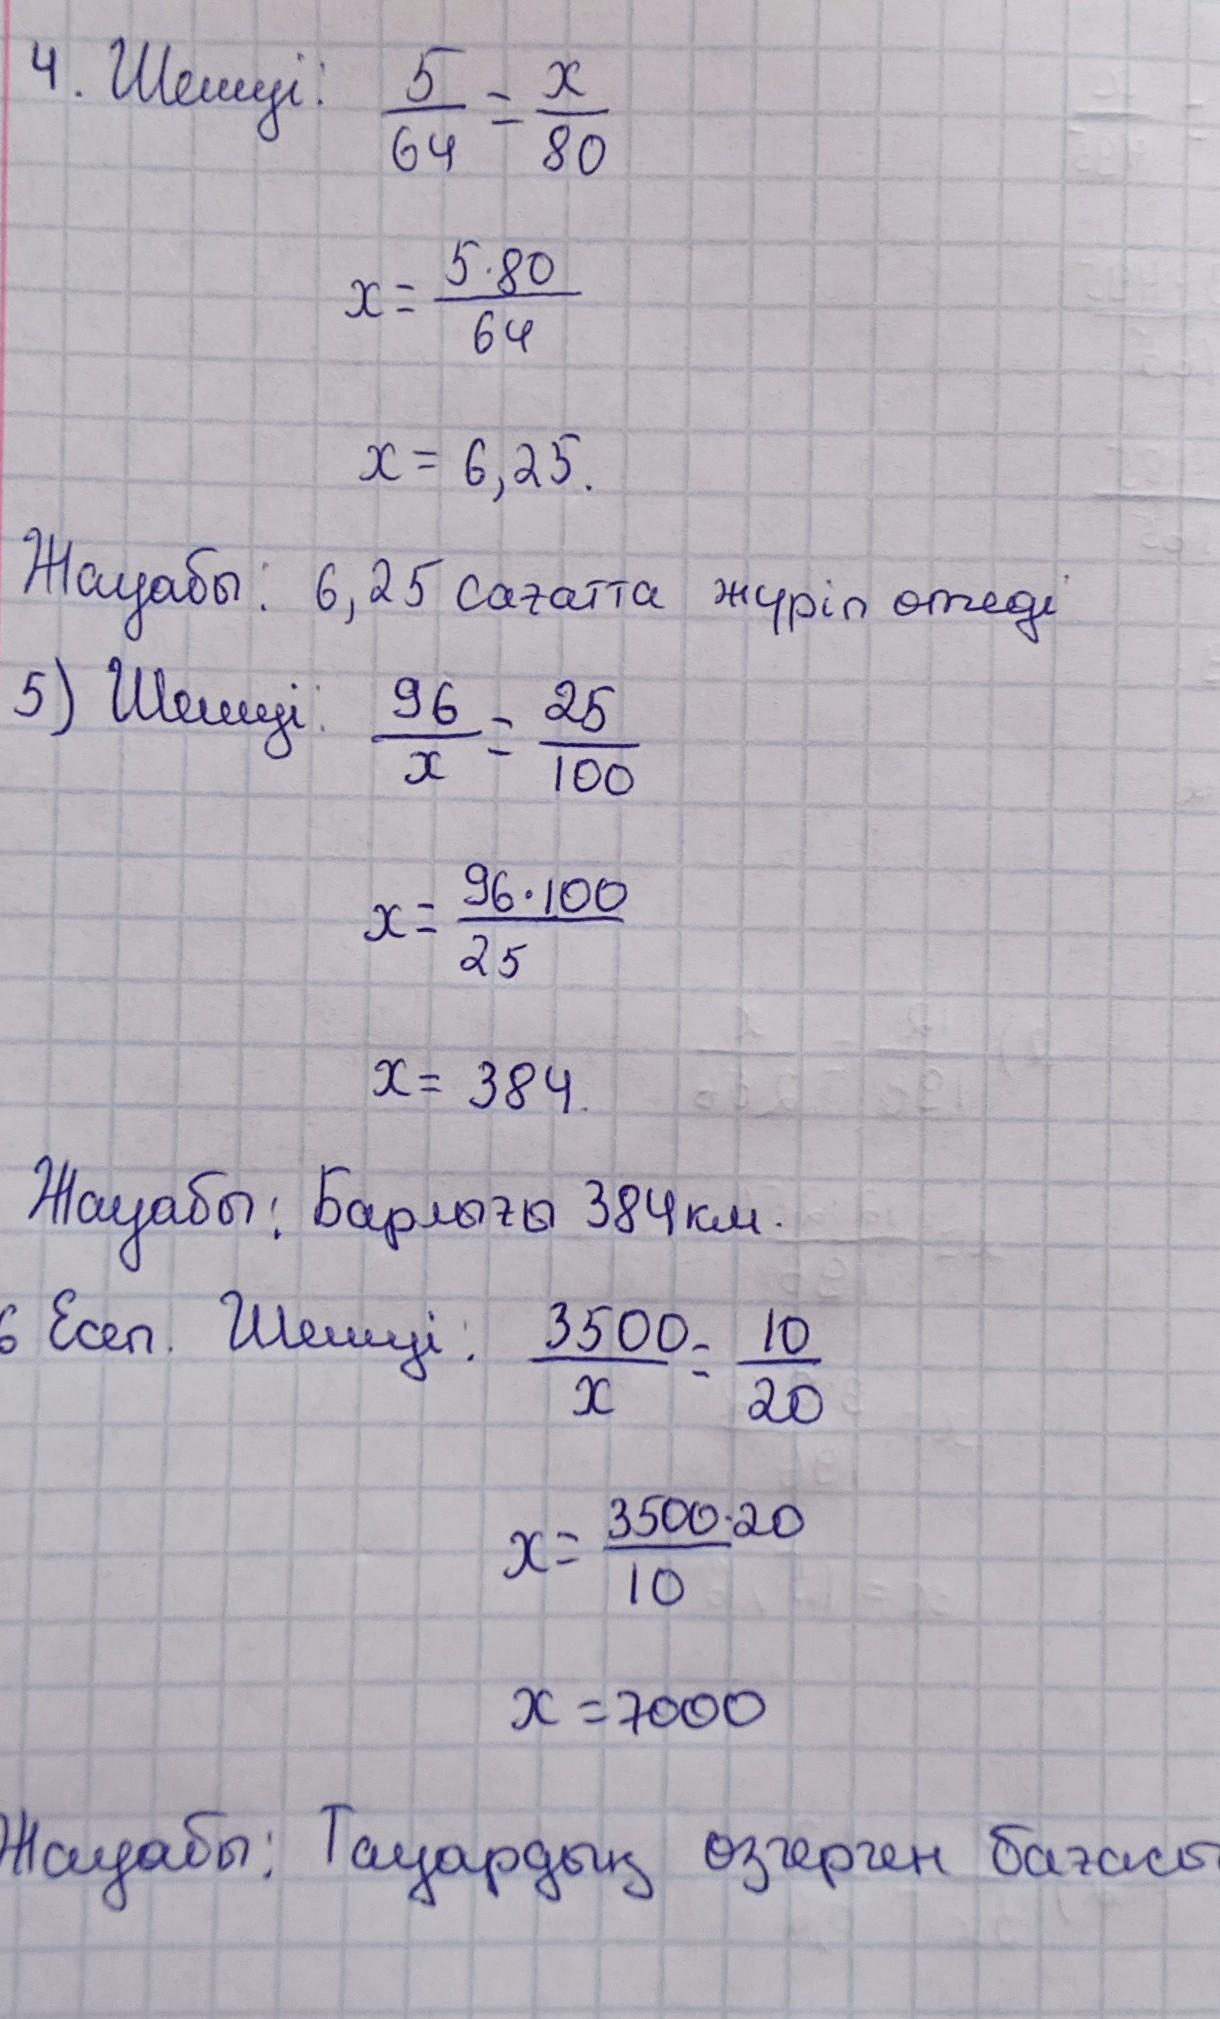 4. Шешуі: 5/64 = x/80
x = 5·80/64
x = 6,25.
Жауабы: 6,25 сағатта жүріп өтеді
5) Шешуі: 96/x = 25/100
x = 96·100/25
x = 384.
Жауабы: Барлығы 384км.
6 Есеп. Шешуі: 3500/x = 10/20
x = 3500·20/10
x = 7000
Жауабы: Тауардың өзгерген бағасы